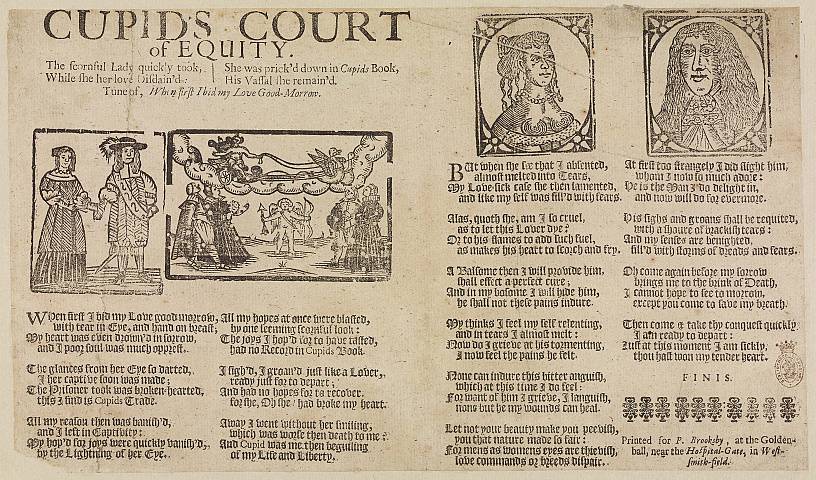 CUPID'S COURT
of EQUITY.
The scornful Lady quickly took,
While she her love Disdain'd.
She was prick'd down in Cupids Book,
His Vassal she remain'd.
Tune of, When first I bid my Love Good-Morrow.
WHen first I bid my Love good morrow,
with tear in Eye, and hand on breast;
My heart was even drown'd in sorrow,
and I poor soul was much opprest.
The glances from her Eye so darted,
I her captive soon was made;
The Prisoner took was broken-hearted,
this I find is Cupids Trade.
All my reason then was banish'd,
and I left in Captivity:
My hop'd for joys were quickly vanish'd,
by the Lightning of her Eye.
All my hopes at once were blasted,
by one seeming scornful look:
The joys I hop'd for to have tasted,
had no Record in Cupids Book.
I sigh'd, I groan'd just like a Lover,
ready just for to depart;
And had no hopes for to recover.
for she, Oh she! had broke my heart.
Away I went without her smiling,
which was worse then death to me?
And Cupid was me then beguiling
of my Life and Liberty.
BUt when she see that I absented,
almost melted into Tears,
My Love-sick case she then lamented,
and like my self was fill'd with fears.
Alas, quoth she, am I so cruel,
as to let this Lover dye?
Or to his flames to add such fuel,
as makes his heart to scorch and fry.
A Balsome then I will provide him,
shall effect a perfect cure;
And in my bosome I will hide him,
he shall not these pains indure.
My thinks I feel my self relenting,
and in tears I almost melt:
Now do I grieve at his tormenting,
I now feel the pains he felt.
None can indure this bitter anguish,
which at this time I do feel:
For want of him I grieve, I languish,
none but he my wounds can heal.
Let not your beauty make you peevish,
you that nature made so fair:
For mens as womens eyes are thievish,
love commands or breeds dispair.
At first too strangely I did slight him,
whom I now so much adore:
He is the Man I do delight in,
and now will do for evermore.
His sighs and groans shall be requited,
with a shoure of brackish tears:
And my senses are benighted,
fill'd with storms of dreads and fears.
Oh come again before my sorrow
brings me to the brink of Death,
I cannot hope to see to morrow,
except you come to save my breath.
Then come & take thy conquest quickly,
I am ready to depart:
Just at this moment I am sickly,
thou hast won my tender heart.
FINIS.
Printed for P. Brooksby, at the Golden-
ball, near the Hospital-Gate, in West-
smith-field.